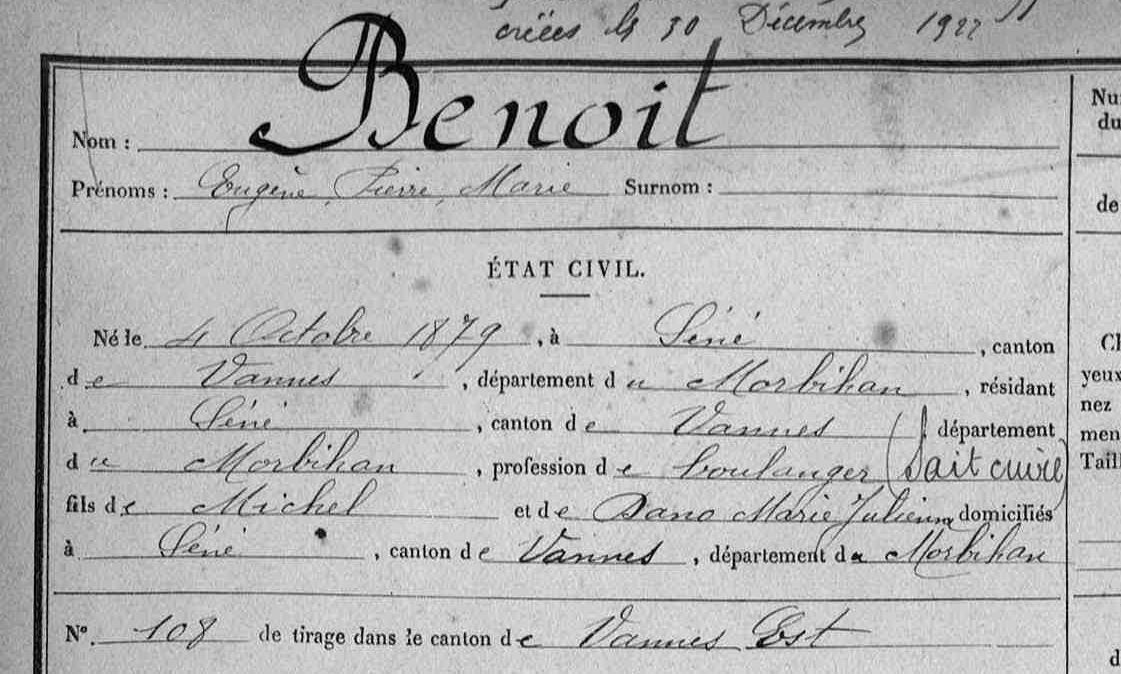 créées le 30 Décembre 1922
Nom : Benoit
Prénoms : Eugène, Pierre, Marie Surnom :
ÉTAT CIVIL.
Né le 4 Octobre 1879, à Séné, canton
de Vannes, département du Morbihan, résidant
à Séné, canton de Vannes, département
du Morbihan, profession de boulanger (Sait cuire)
fils de Michel et de Dano Marie Julienne domiciliés
à Séné, canton de Vannes, département du Morbihan
N° 108 de tirage dans le canton de Vannes Est
Nu
du
de
yeux
nez
men
Taill
d